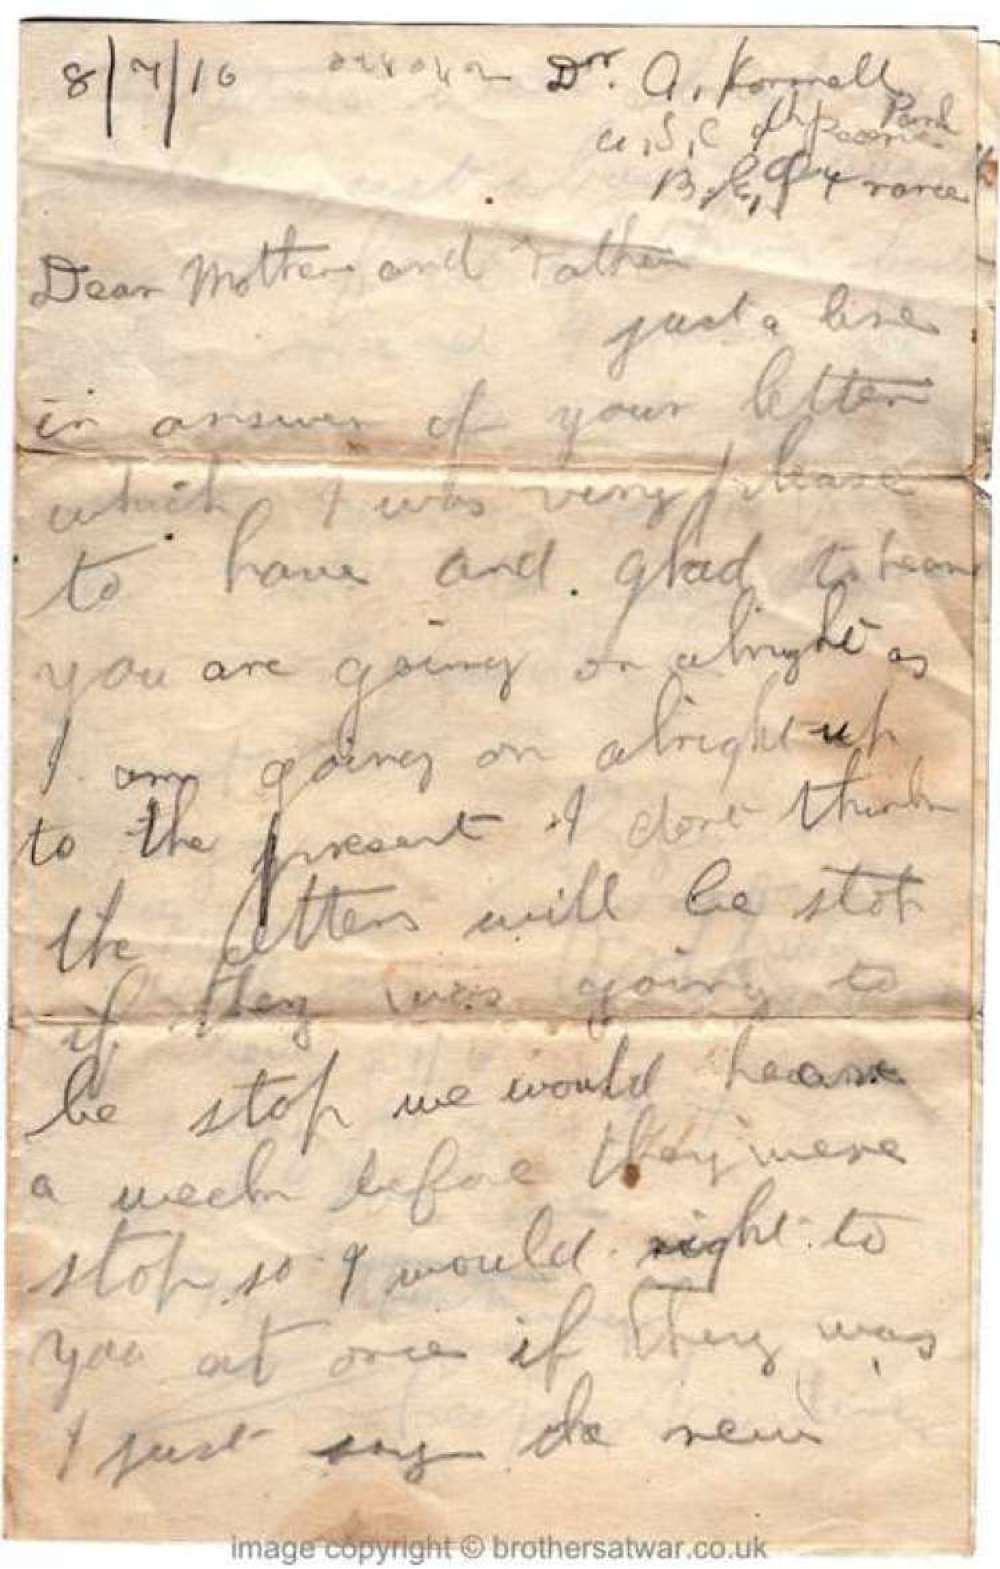 8/7/16 Dr. A. Kornell
A.S.C Park
B.E.F France
Dear Mother and Father
just a line
in answer of your letter
which I was very please
to have and glad to hear
you are going on alright as
I am going on alright up
to the present I dont think
the letters will be stop
if they was going to
be stop we would hear
a week before they were
stop so I would right to
you at once if they was
I just say
image copyright © brothersatwar.co.uk